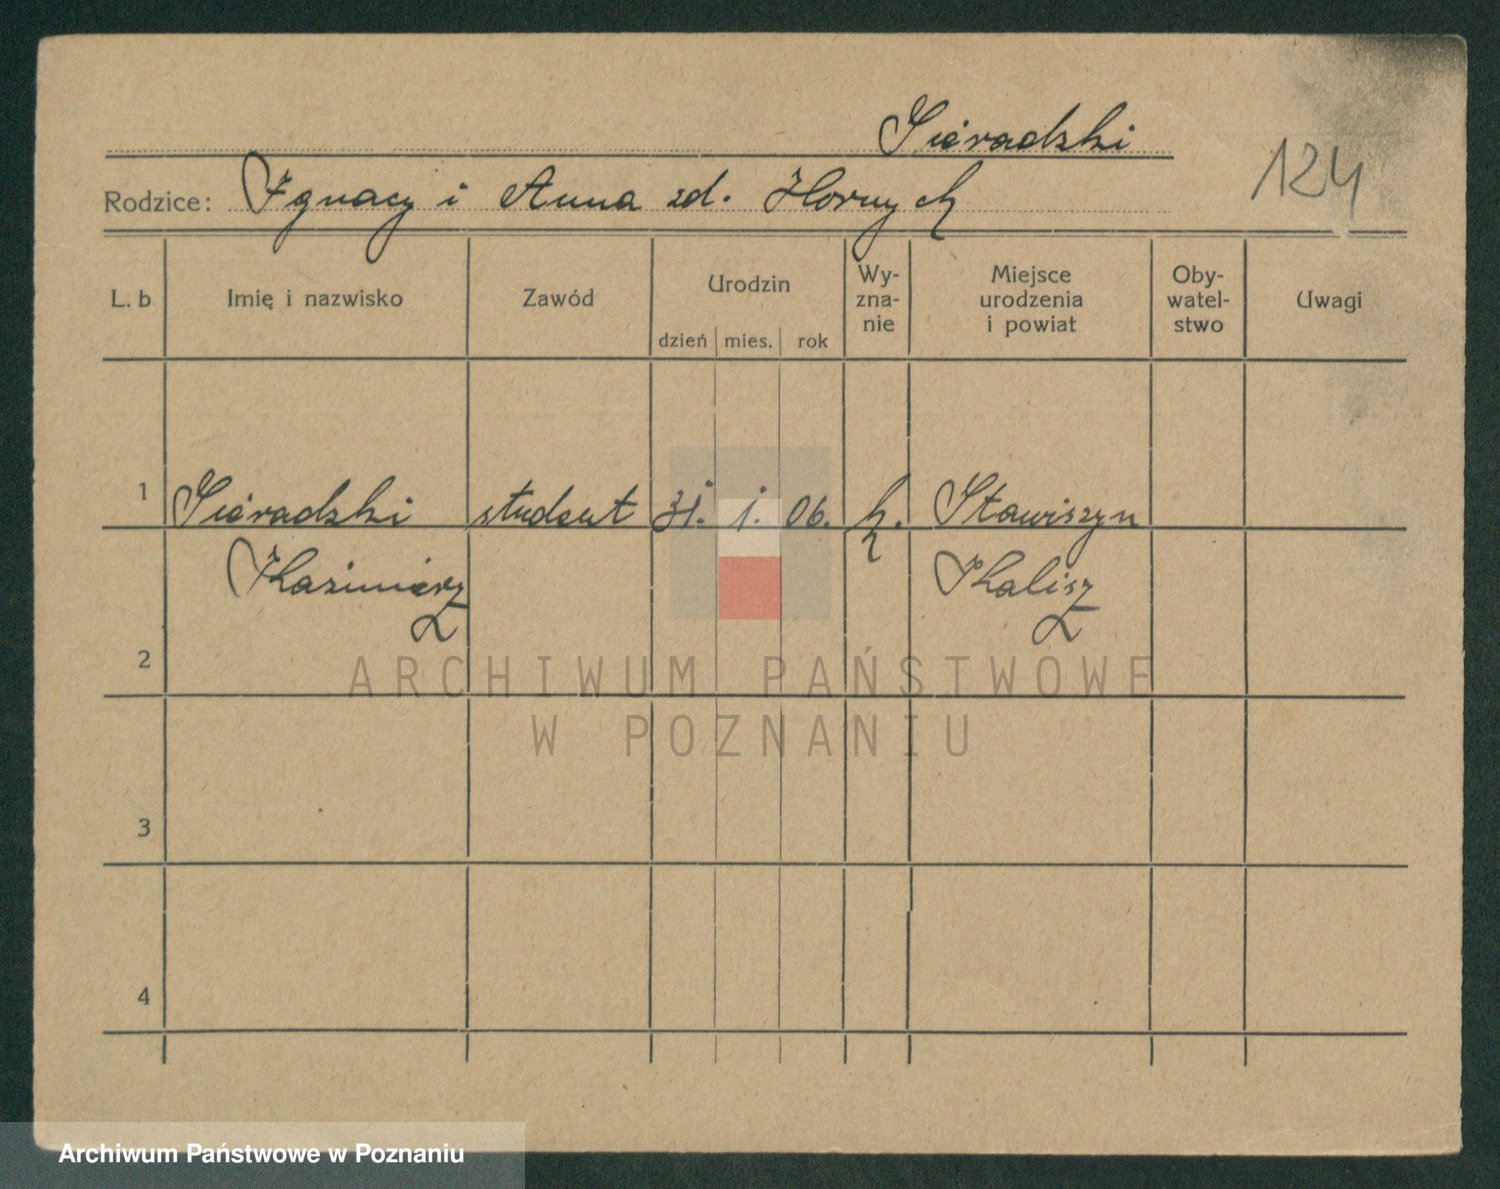 Sieradzki
124
Rodzice: Ignacy i Anna zd. Hornych
L. b. Imię i nazwisko Zawód Urodzin Wy- Miejsce Oby- Uwagi
zna- urodzenia watel-
nie i powiat stwo
dzień mies. rok
1 Sieradzki student 31. 1. 06. k. Stawiszyn
Kazimierz Kalisz
2
ARCHIWUM PAŃSTWOWE
W POZNANIU
3
4
Archiwum Państwowe w Poznaniu